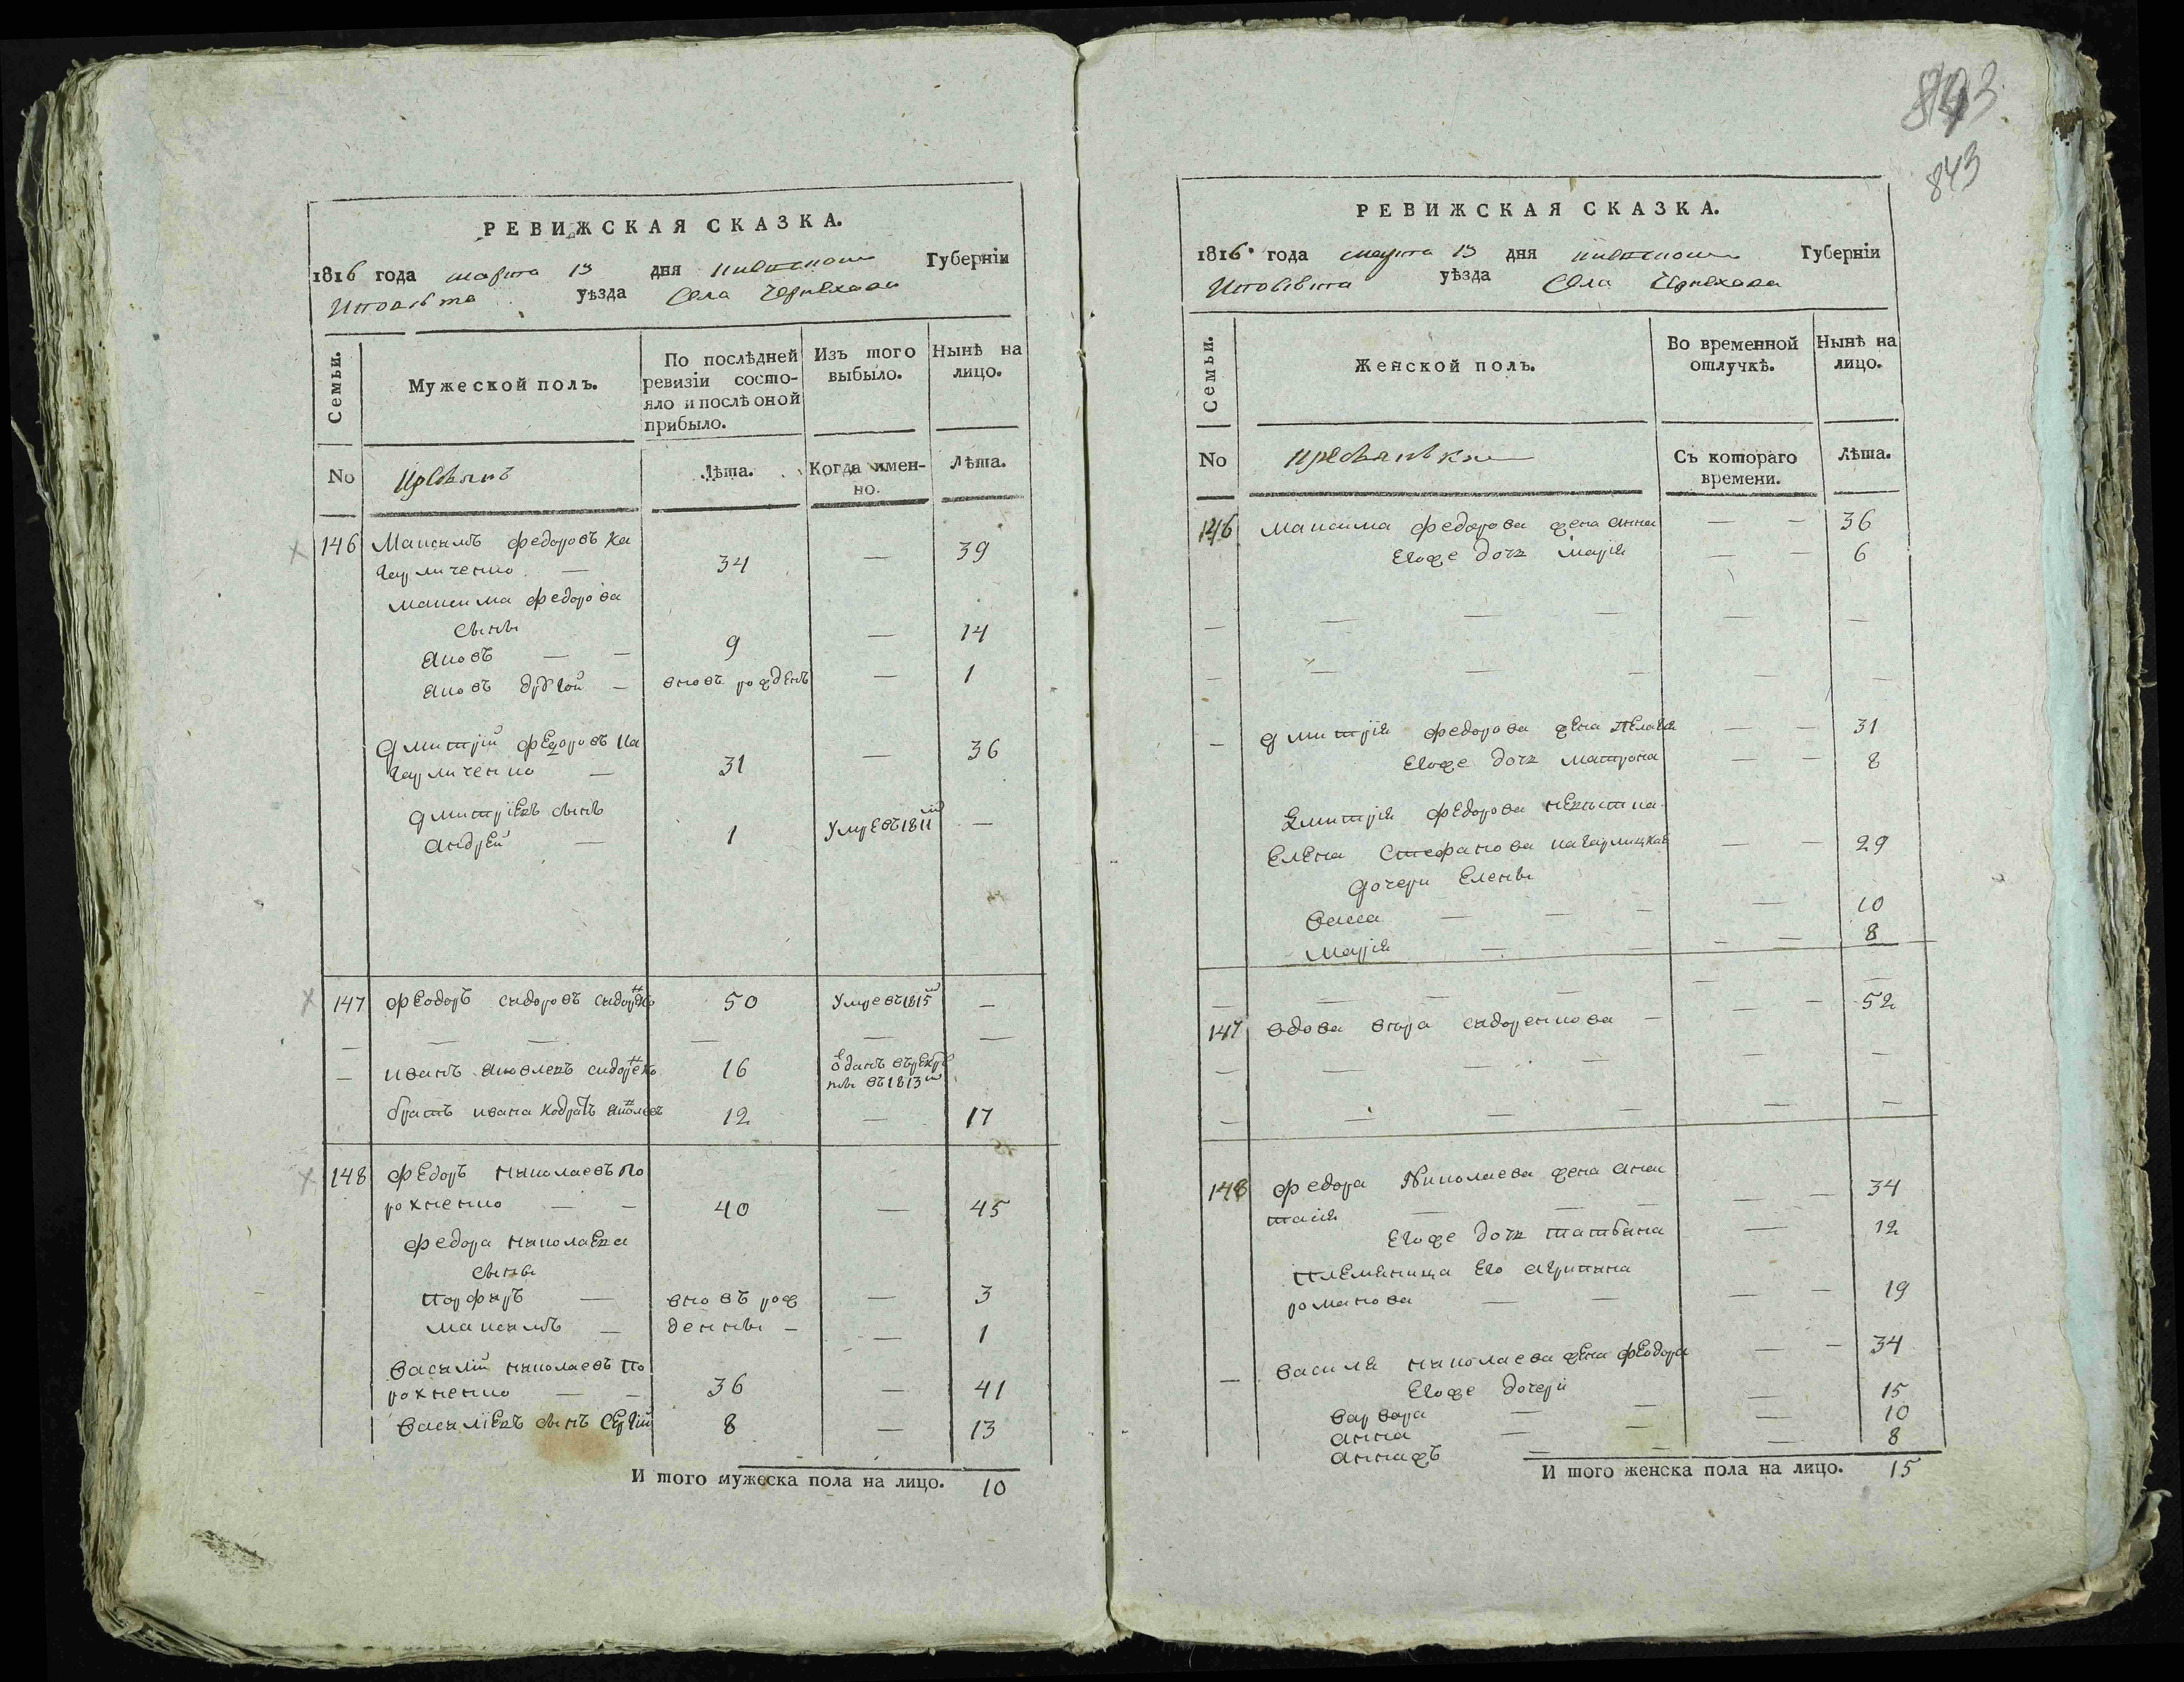 РЕВИЖСКАЯ СКАЗКА.
1816 года марта 13 дня Киевской Губерніи
уѣзда Села Чернехова
Семьи.
Мужеской полъ.
По послѣдней ревизіи состояло и послѣ оной прибыло.
Изъ того выбыло.
Нынѣ на лицо.
No
Лѣта.
Когда именно.
Лѣта.
146 Максимъ Федоровъ Ка
гарличенко — 34 — 39
Максима Федорова
сыны
Яковъ — — 9 — 14
Яковъ другой — вновь рожденъ — 1
Дмитрій Федоровъ Ка
гарличенко — 31 — 36
Дмитріевъ сынъ
Андрей — 1 Умре въ 1811 —
147 Феодоръ Сидоровъ Сидоренко 50 Умре въ 1815 —
— — — — — —
— Иванъ Яковлевъ Сидоренко 16 Отданъ въ рекру
ты въ 1813
братъ Ивана Кодратъ Яковлевъ 12 — 17
148 Федоръ Николаевъ По
рохненко — — 40 — 45
Федора Николаева
сыны
Порфиръ — вновь рож — 3
Максимъ — денны — — 1
Василій Николаевъ По
рохненко — — 36 — 41
Василіевъ сынъ Сергій 8 — 13
И того мужеска пола на лицо. 10
843
843
РЕВИЖСКАЯ СКАЗКА.
1816 года марта 13 дня Киевской Губерніи
уѣзда Села Чернехова
Семьи.
Женской полъ.
Во временной отлучкѣ.
Нынѣ на лицо.
No
Съ котораго времени.
Лѣта.
146 Максима Федорова жена Анна — — 36
Егоже дочь Марія — — 6
— — — — — —
— — — — — —
— Дмитрія Федорова жена Пелагея — — 31
Егоже дочь Матрона — — 8
Дмитрія Федорова невѣстка
Елена Стефанова Кагарлицкая — — 29
Дочери Елены
Васса — — — — 10
Марія — — — — 8
— — — — — —
147 вдова Вѣра Сидоренкова — — 52
— — — — — —
— — — — — —
148 Федора Николаева жена Анас
тасія — — — — — 34
Егоже дочь Татьяна — 12
Племяница Его Агрипина
Романова — — — — 19
— Василя Николаева жена Феодора — — 34
Егоже дочери
Варвара — — — 15
Анна — — — 10
Аннажъ — — — 8
И того женска пола на лицо. 15